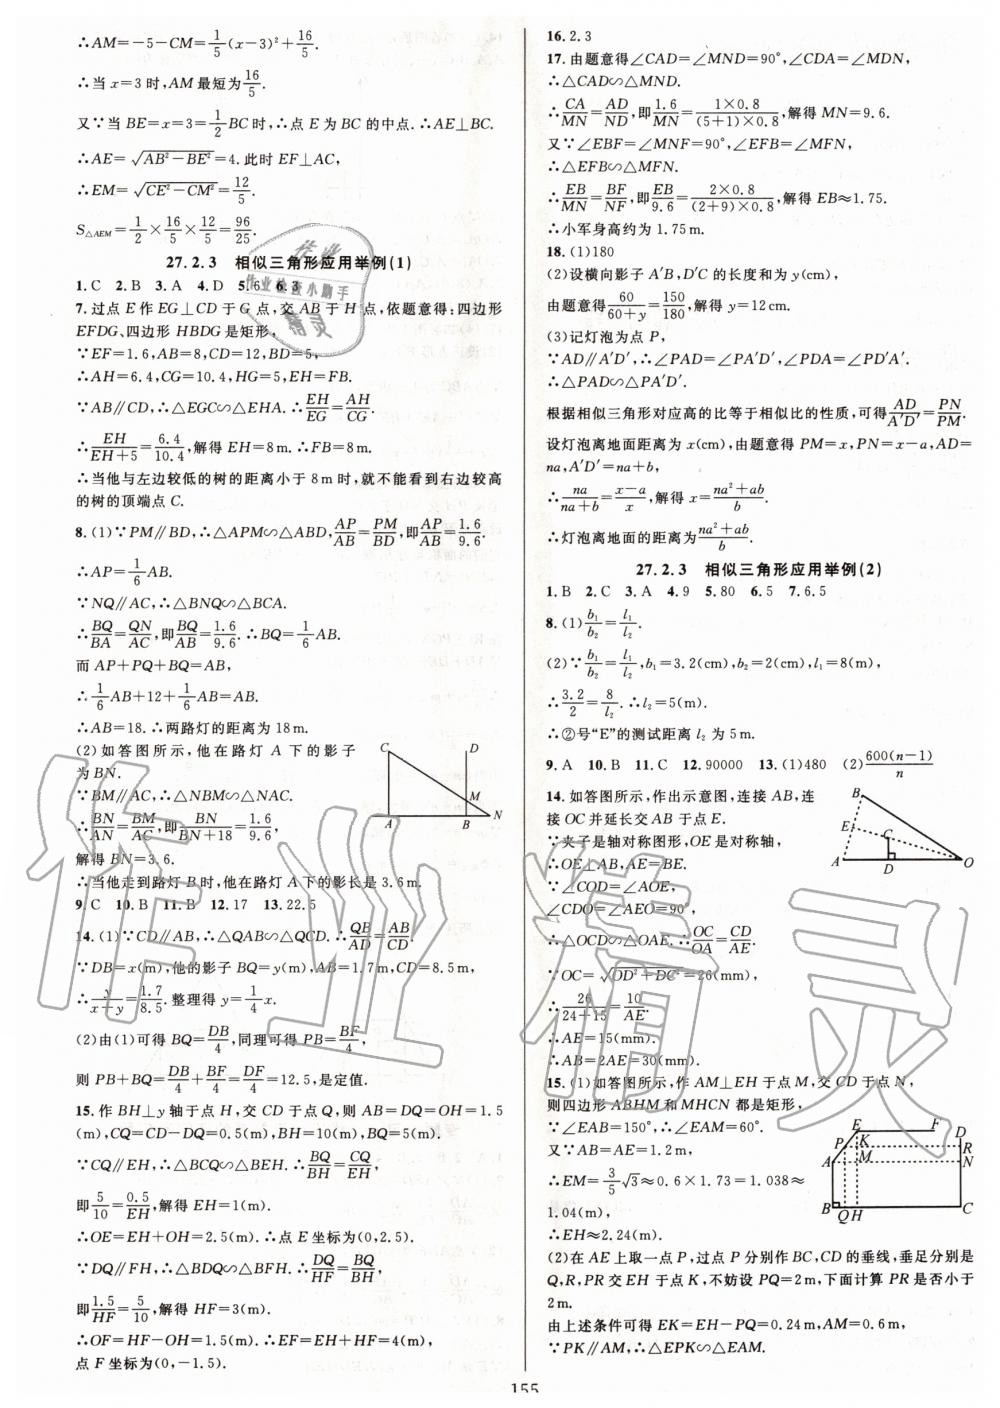 ∴AM=-5-CM=1/5(x-3)²+16/5.
∴当 x=3 时,AM 最短为16/5.
又∵当 BE=x=3=1/2BC 时,∴点 E 为 BC 的中点.∴AE⊥BC.
∴AE=√(AB²-BE²)=4.此时 EF⊥AC,
∴EM=√(CE²-CM²)=12/5.
S△AEM=1/2×16/5×12/5=96/25.
27.2.3 相似三角形应用举例(1)
1.C 2.B 3.A 4.D 5.6 6.3
7.过点 E 作 EG⊥CD 于 G 点,交 AB 于 H 点,依题意得:四边形
EFDG、四边形 HBDG 是矩形,
∵EF=1.6,AB=8,CD=12,BD=5,
∴AH=6.4,CG=10.4,HG=5,EH=FB.
∵AB∥CD,∴△EGC∽△EHA.∴EH/EG=AH/CG.
∴EH/(EH+5)=6.4/10.4,解得 EH=8 m.∴FB=8 m.
∴当他与左边较低的树的距离小于 8 m 时,就不能看到右边较高
的树的顶端点 C.
8.(1)∵PM∥BD,∴△APM∽△ABD,AP/AB=PM/BD,即AP/AB=1.6/9.6.
∴AP=1/6AB.
∵NQ∥AC,∴△BNQ∽△BCA.
∴BQ/BA=QN/AC,即BQ/AB=1.6/9.6.∴BQ=1/6AB.
而 AP+PQ+BQ=AB,
∴1/6AB+12+1/6AB=AB.
∴AB=18.∴两路灯的距离为 18 m.
(2)如答图所示,他在路灯 A 下的影子
为 BN.
∵BM∥AC,∴△NBM∽△NAC.
∴BN/AN=BM/AC,即BN/(BN+18)=1.6/9.6,
解得 BN=3.6.
∴当他走到路灯 B 时,他在路灯 A 下的影长是 3.6 m.
C D M A B N
9.C 10.B 11.B 12.17 13.22.5
14.(1)∵CD∥AB,∴△QAB∽△QCD.∴QB/AD=AB/CD.
∵DB=x(m),他的影子 QB=y(m),AB=1.7 m,CD=8.5 m,
∴y/(x+y)=1.7/8.5.整理得 y=1/4x.
(2)由(1)可得 BQ=DB/4,同理可得 PB=BF/4,
则 PB+BQ=DB/4+BF/4=DF/4=12.5,是定值.
15.作 BH⊥y 轴于点 H,交 CD 于点 Q,则 AB=DQ=OH=1.5
(m),CQ=CD-DQ=0.5(m),BH=10(m),BQ=5(m).
∵CQ∥EH,∴△BCQ∽△BEH.∴BQ/BH=CQ/EH,
即5/10=0.5/EH,解得 EH=1(m).
∴OE=EH+OH=2.5(m).∴点 E 坐标为(0,2.5).
∵DQ∥FH,∴△BDQ∽△BFH.∴DQ/HF=BQ/BH,
即1.5/HF=5/10,解得 HF=3(m).
∴OF=HF-OH=1.5(m).∴EF=EH+HF=4(m),
点 F 坐标为(0,-1.5).
16.2.3
17.由题意得∠CAD=∠MND=90°,∠CDA=∠MDN,
∴△CAD∽△MND.
∴CA/MN=AD/ND,即1.6/MN=(1×0.8)/((5+1)×0.8),解得 MN=9.6.
又∵∠EBF=∠MNF=90°,∠EFB=∠MFN,
∴△EFB∽△MFN.
∴EB/MN=BF/NF,即EB/9.6=(2×0.8)/((2+9)×0.8),解得 EB≈1.75.
∴小军身高约为 1.75 m.
18.(1)180
(2)设横向影子 A′B,D′C 的长度和为 y(cm),
由题意得60/(60+y)=150/180,解得 y=12 cm.
(3)记灯泡为点 P,
∵AD∥A′D′,∴∠PAD=∠PA′D′,∠PDA=∠PD′A′.
∴△PAD∽△PA′D′.
根据相似三角形对应高的比等于相似比的性质,可得AD/A′D′=PN/PM.
设灯泡离地面距离为 x(cm),由题意得 PM=x,PN=x-a,AD=
na,A′D′=na+b,
∴na/(na+b)=(x-a)/x,解得 x=(na²+ab)/b.
∴灯泡离地面的距离为(na²+ab)/b.
27.2.3 相似三角形应用举例(2)
1.B 2.C 3.A 4.9 5.80 6.5 7.6.5
8.(1)b₁/b₂=l₁/l₂.
(2)∵b₁/b₂=l₁/l₂,b₁=3.2(cm),b₂=2(cm),l₁=8(m),
∴3.2/2=8/l₂.∴l₂=5(m).
∴②号“E”的测试距离 l₂ 为 5 m.
9.A 10.B 11.C 12.90000 13.(1)480 (2)600(n-1)/n
14.如答图所示,作出示意图,连接 AB,连
接 OC 并延长交 AB 于点 E.
∵夹子是轴对称图形,OE是对称轴,
∴OE⊥AB,AE=BE.
∵∠COD=∠AOE,
∠CDO=∠AEO=90°,
∴△OCD∽△OAE.∴OC/OA=CD/AE.
∵OC=√(OD²+DC²)=26(mm),
∴26/(24+15)=10/AE.
∴AE=15(mm).
∴AB=2AE=30(mm).
B E C A D O
15.(1)如答图所示,作 AM⊥EH 于点 M,交 CD 于点 N,
则四边形 ABHM 和 MHCN 都是矩形,
∵∠EAB=150°,∴∠EAM=60°.
又∵AB=AE=1.2 m,
∴EM=3/5√3≈0.6×1.73=1.038≈
1.04(m).
∴EH≈2.24(m).
E F P K D R A M N B Q H C
(2)在 AE 上取一点 P,过点 P 分别作 BC,CD 的垂线,垂足分别是
Q,R,PR 交 EH 于点 K,不妨设 PQ=2 m,下面计算 PR 是否小于
2 m.
由上述条件可得 EK=EH-PQ=0.24 m,AM=0.6 m,
∵PK∥AM,∴△EPK∽△EAM.
155
作业
作业检查小助手
精灵
作业精灵